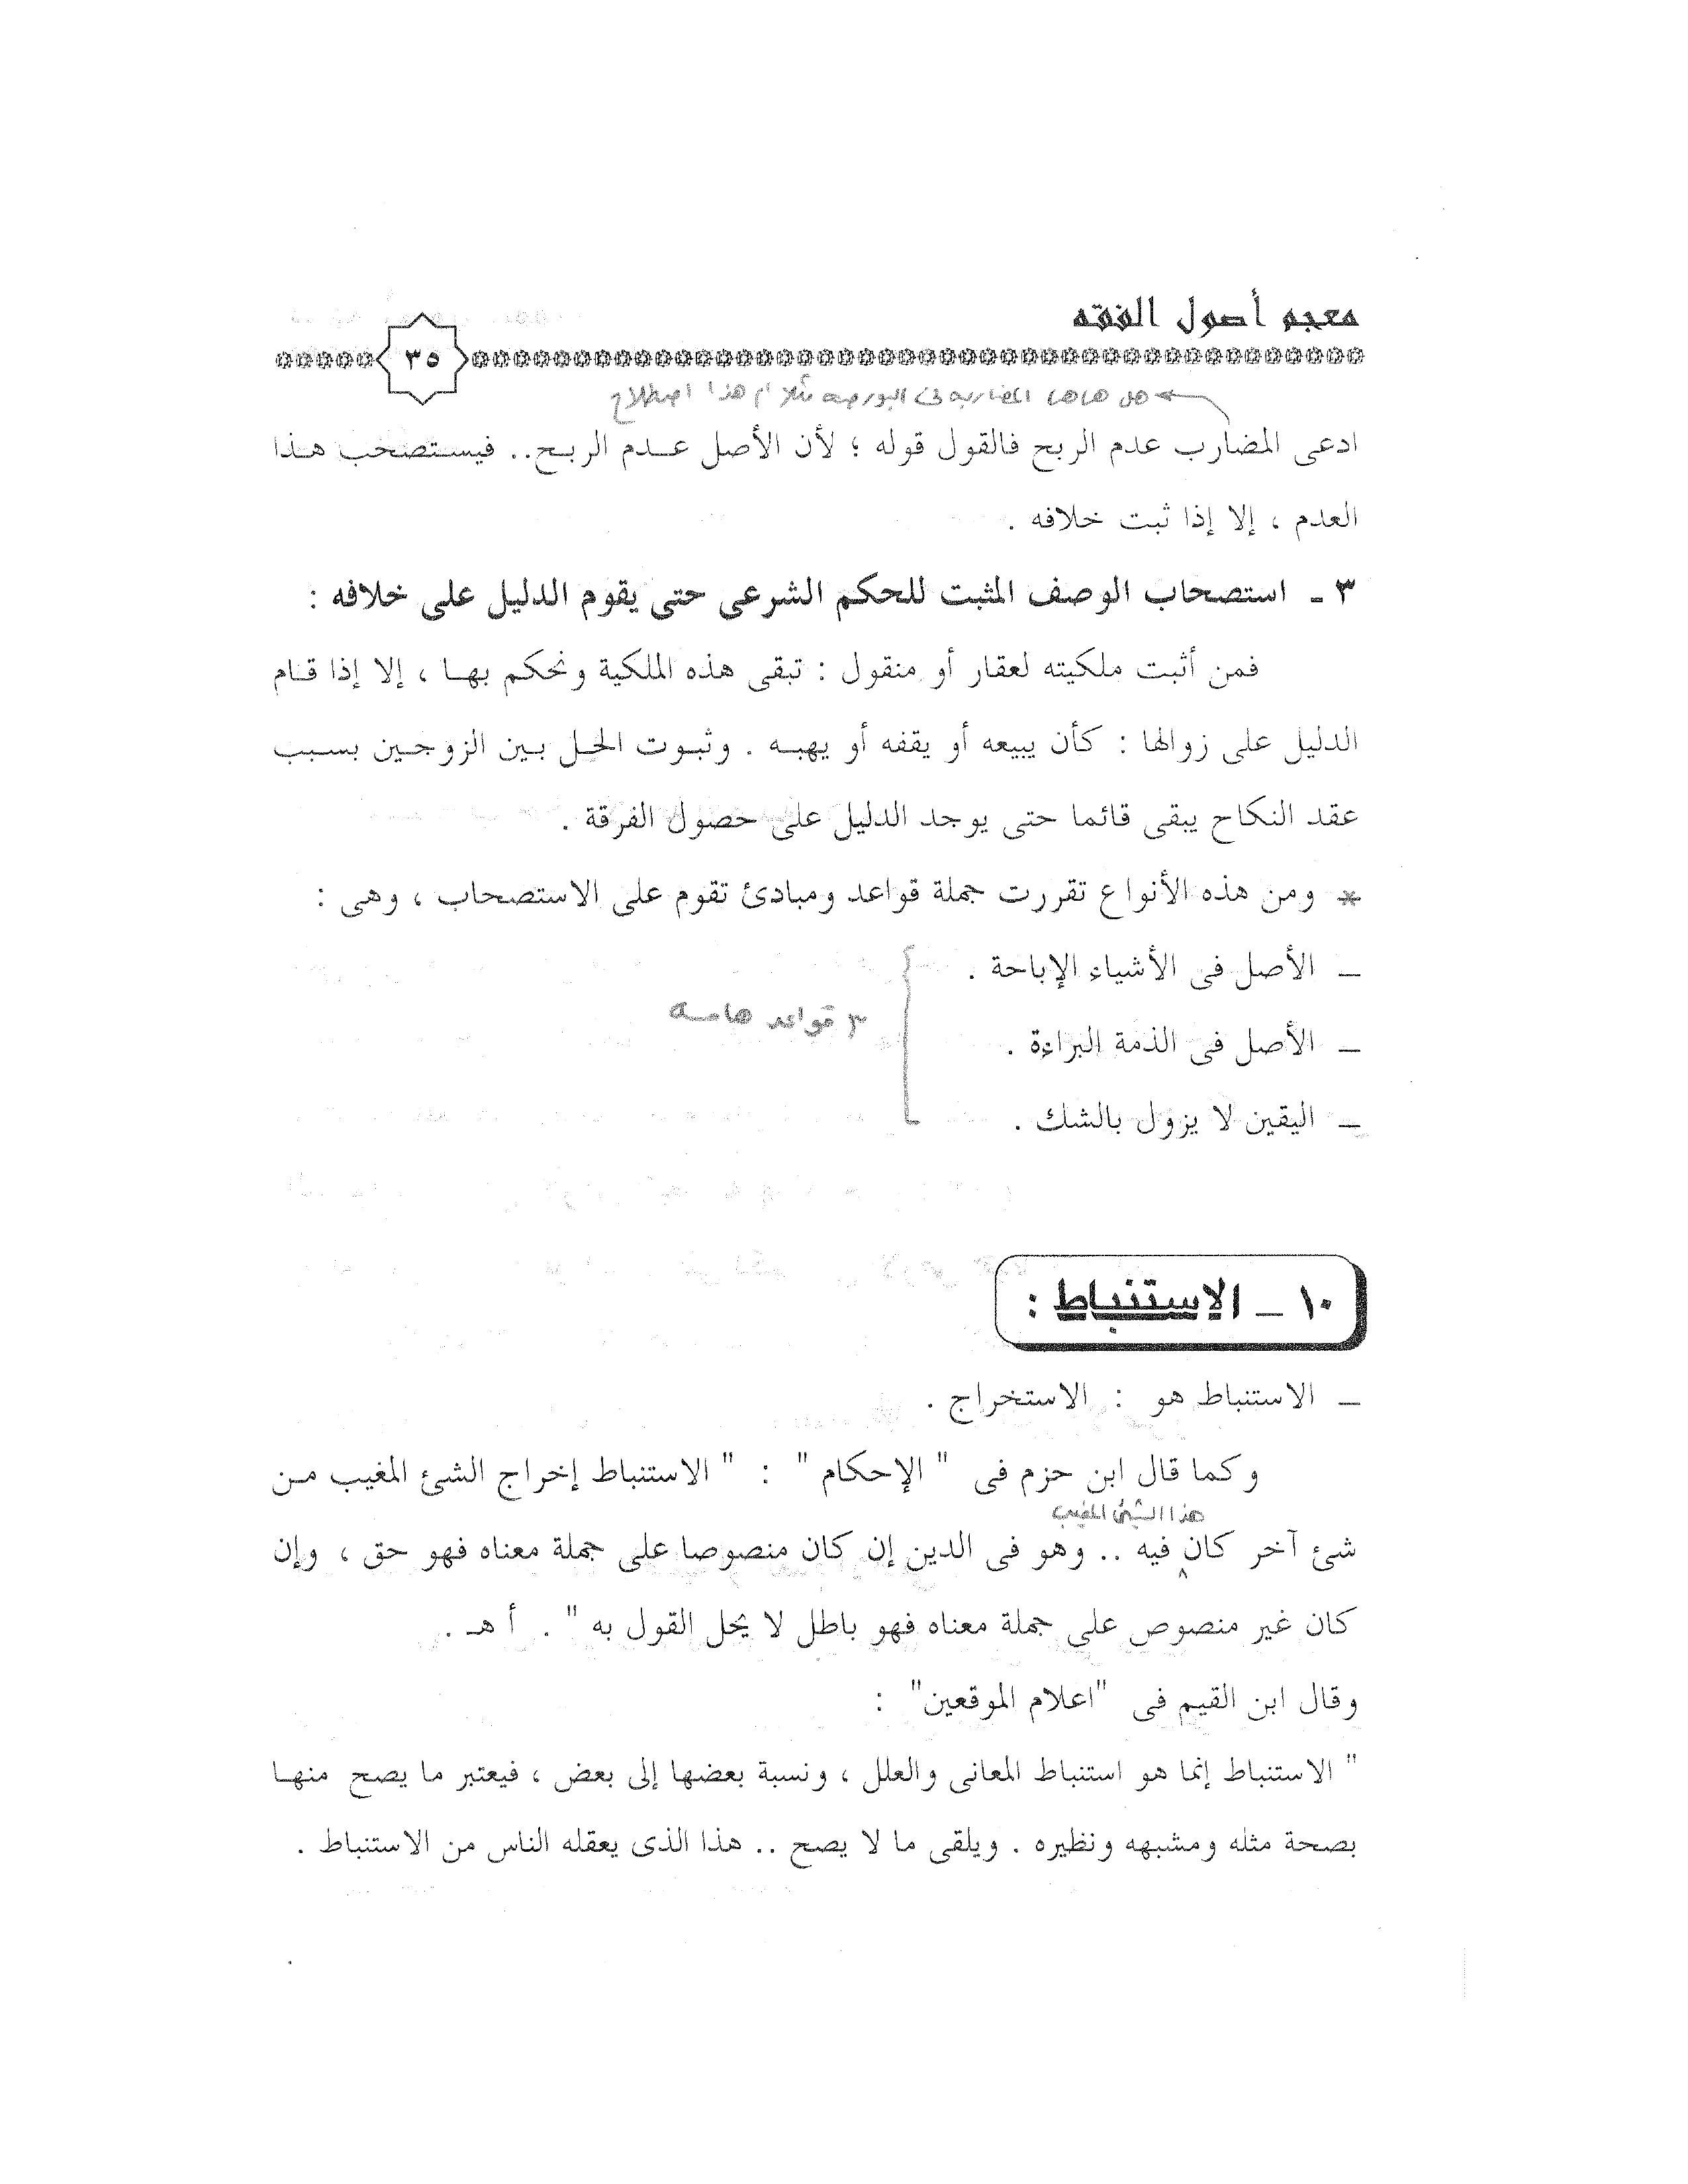 معجم أصول الفقه
٣٥
هل هاهنا المضاربة فى البورصة مثلا أم هذا اصطلاح
ادعى المضارب عدم الربح فالقول قوله ؛ لأن الأصل عدم الربح.. فيستصحب هذا
العدم ، إلا إذا ثبت خلافه .
٣ ـ استصحاب الوصف المثبت للحكم الشرعى حتى يقوم الدليل على خلافه :
فمن أثبت ملكيته لعقار أو منقول : تبقى هذه الملكية ونحكم بها ، إلا إذا قام
الدليل على زوالها : كأن يبيعه أو يقفه أو يهبه . وثبوت الحل بين الزوجين بسبب
عقد النكاح يبقى قائما حتى يوجد الدليل على حصول الفرقة .
* ومن هذه الأنواع تقررت جملة قواعد ومبادئ تقوم على الاستصحاب ، وهى :
ـ الأصل فى الأشياء الإباحة .
٣ قواعد هامة
ـ الأصل فى الذمة البراءة .
ـ اليقين لا يزول بالشك .
١٠ ـ الاستنباط :
ـ الاستنباط هو : الاستخراج .
وكما قال ابن حزم فى " الإحكام " : " الاستنباط إخراج الشئ المغيب من
هذا الشئ المغيب
شئ آخر كان فيه .. وهو فى الدين إن كان منصوصا على جملة معناه فهو حق ، وإن
كان غير منصوص على جملة معناه فهو باطل لا يحل القول به " . أ هـ .
وقال ابن القيم فى "اعلام الموقعين" :
" الاستنباط إنما هو استنباط المعانى والعلل ، ونسبة بعضها إلى بعض ، فيعتبر ما يصح منها
بصحة مثله ومشبهه ونظيره . ويلقى ما لا يصح .. هذا الذى يعقله الناس من الاستنباط .